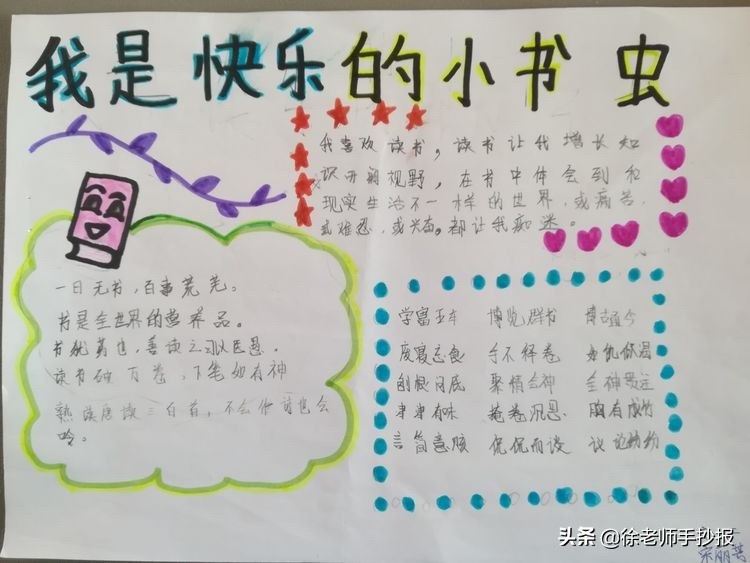 我是快乐的小书虫
我喜欢读书，读书让我增长知
识开阔视野，在书中体会到和
现实生活不一样的世界，或痛苦，
或难忍，或兴奋。都让我痴迷。
一日无书，百事荒芜。
书是全世界的营养品。
书犹药也，善读之可以医愚。
读书破万卷，下笔如有神
熟读唐诗三百首，不会作诗也会
吟。
学富五车 博览群书 博古通今
废寝忘食 手不释卷 如饥似渴
刨根问底 聚精会神 全神贯注
津津有味 掩卷沉思 胸有成竹
言简意赅 侃侃而谈 议论纷纷
头条 @徐老师手抄报